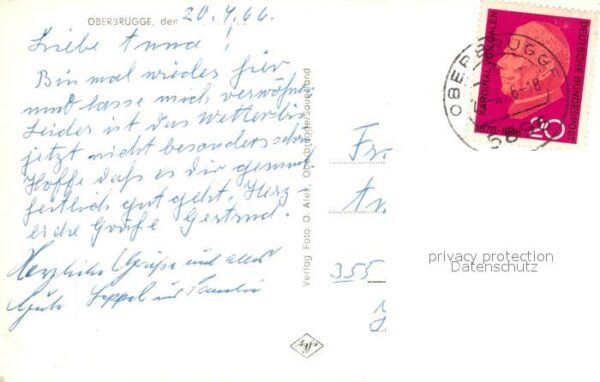 OBERBRÜGGE, den 20.4.66.
Liebe Anna!
Bin mal wieder hier
und lasse mich verwöhn
Leider ist das Wetter bis
jetzt nicht besonders schön
Hoffe daß es dir gesund
heitlich gut geht. Herz
liche Grüße Gertrud.
Herzliche Grüße und alles
Gute Seppel und Familie
Verlag Foto O. Alex, Oberbrügge/Sauerland
Agfa
KARDINAL VON GALEN
DEUTSCHE BUNDESPOST
20
OBERBRÜGGE
Fr
An
355
privacy protection
Datenschutz